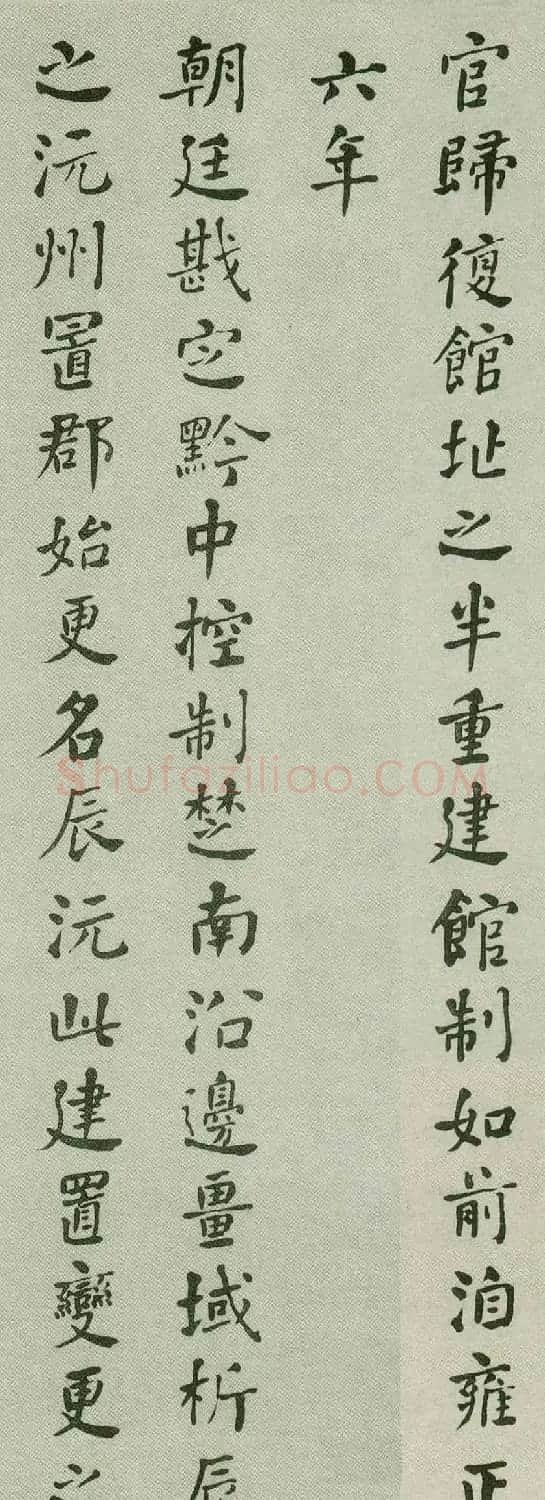 官歸復館址之半重建館制如前洎雍正
六年
朝廷戡定黔中控制楚南沿邊畺域析辰
之沅州置郡始更名辰沅此建置變更之
Shufaziliao.COM